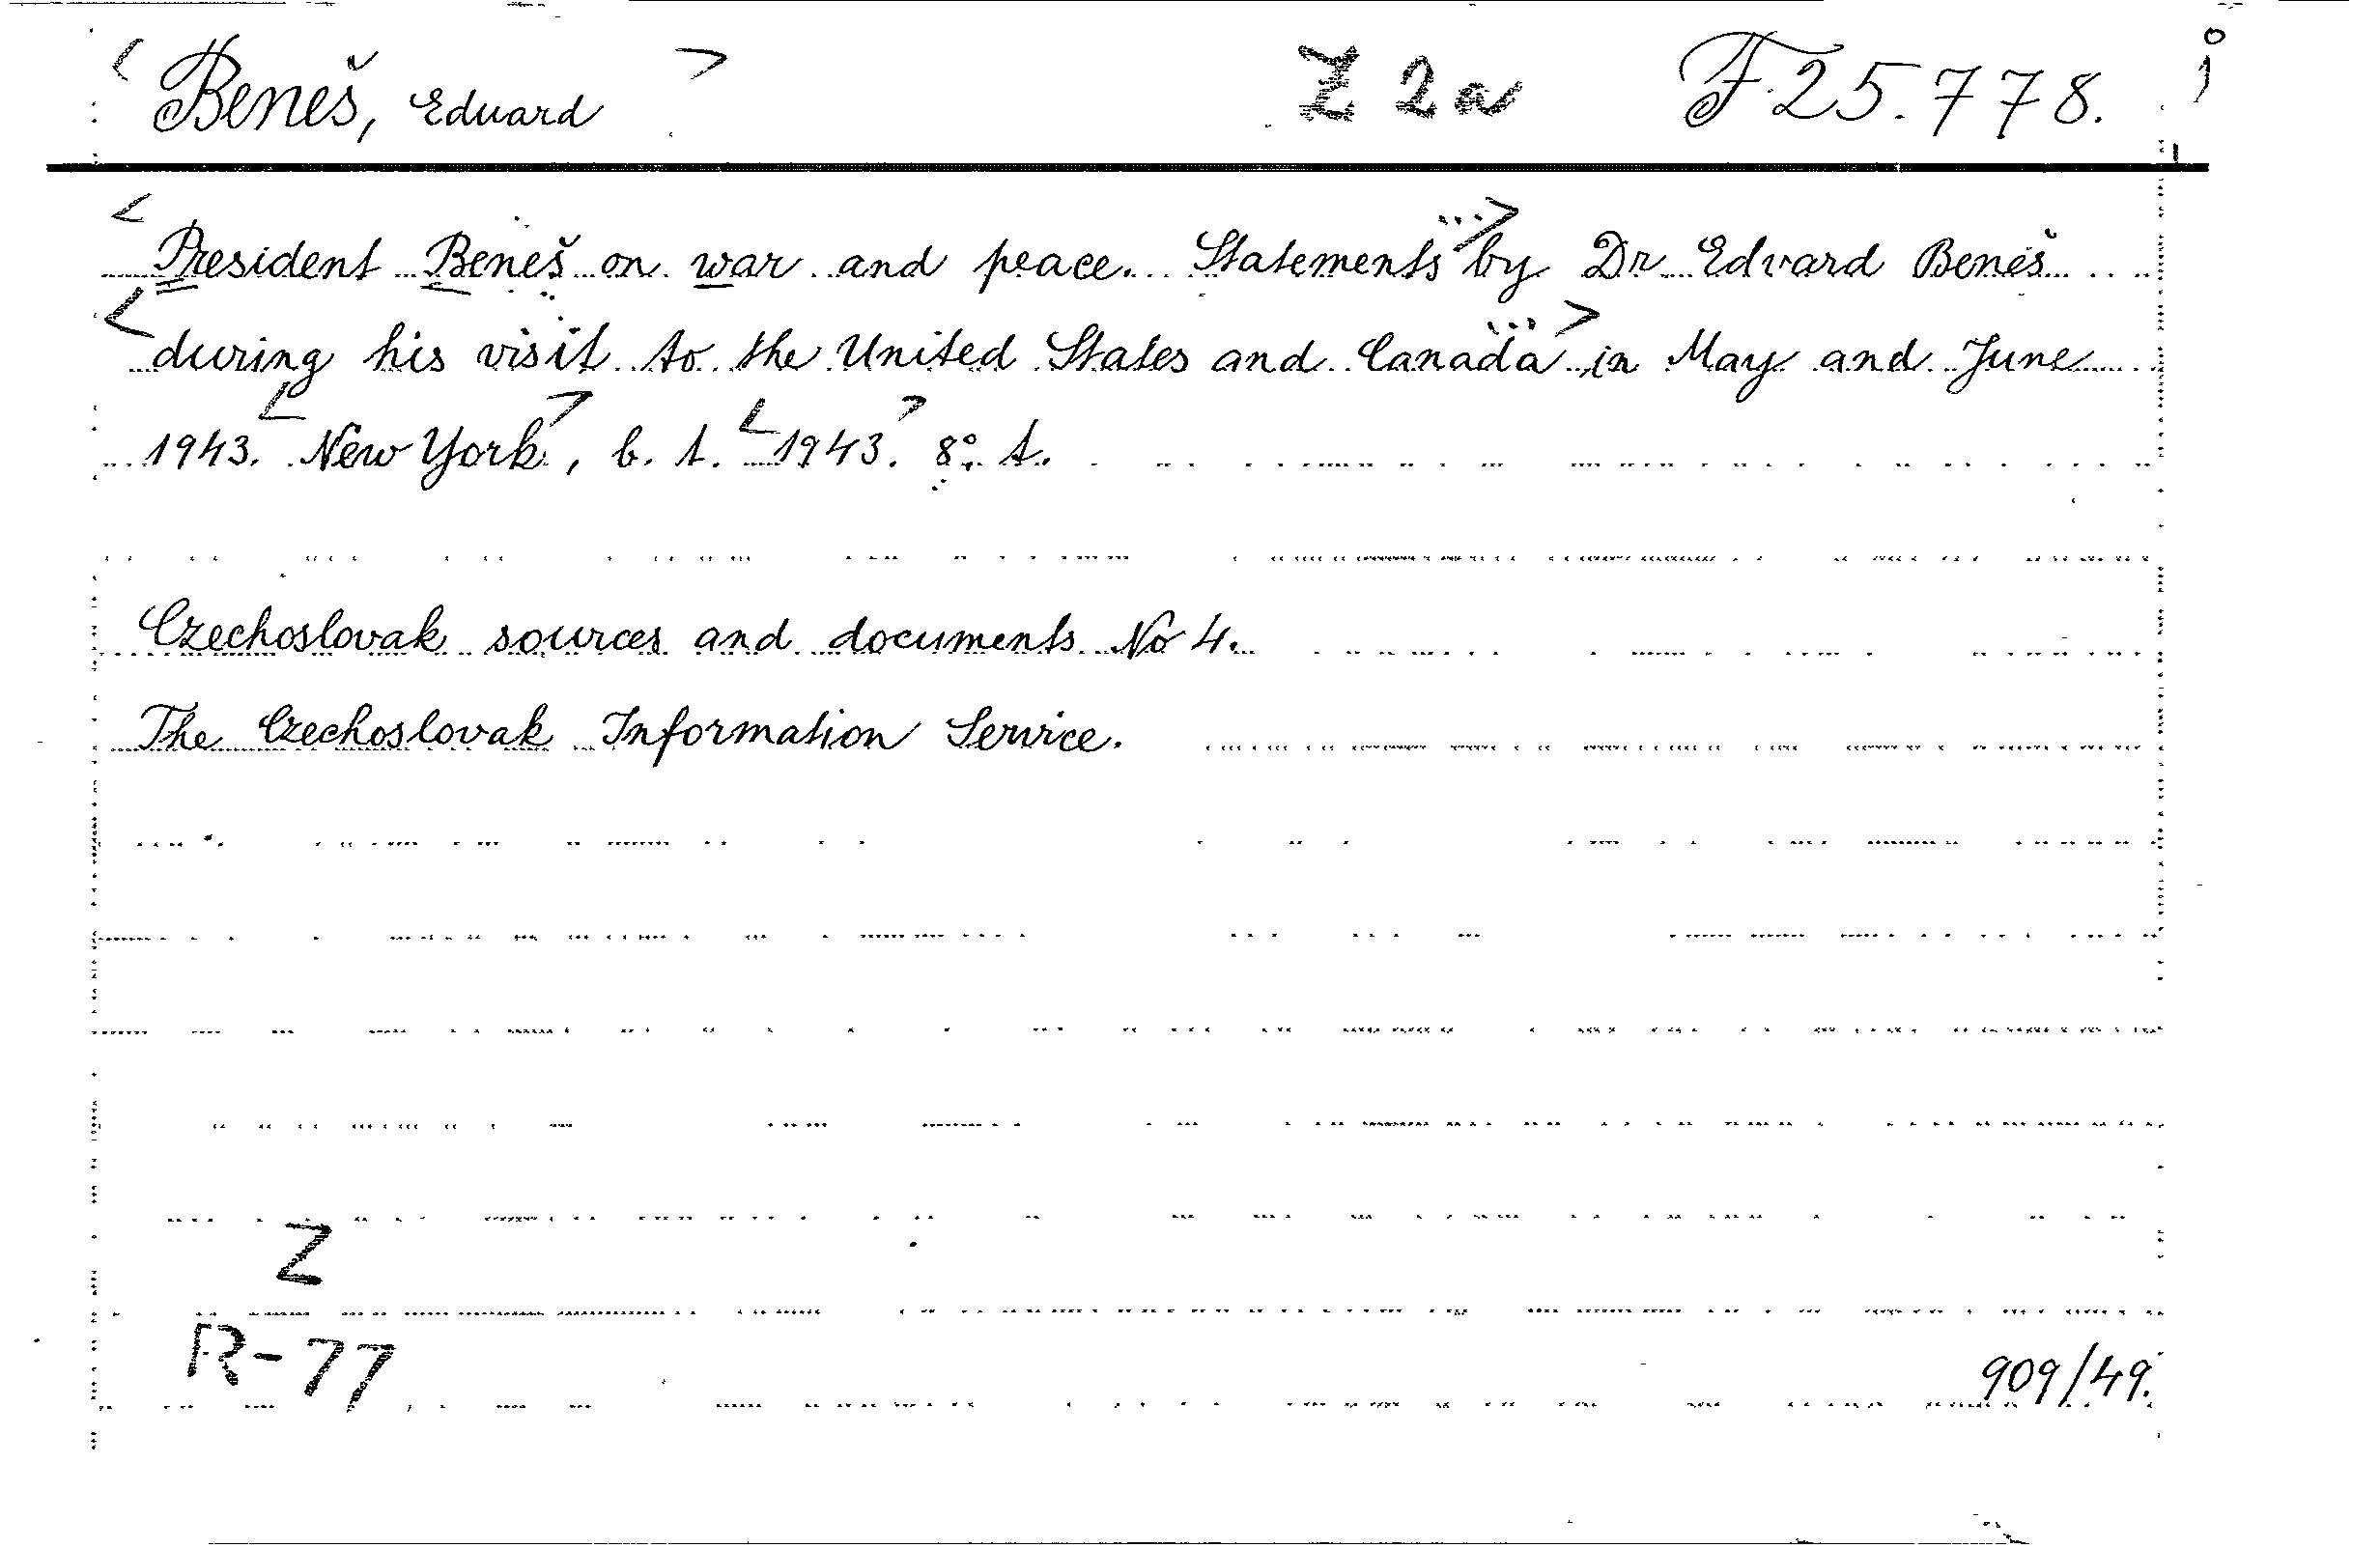 < Beneš, Eduard > Z 2a F 25.778.
<President Beneš on war and peace. Statements...> by Dr Edvard Beneš
<during his visit to the United States and Canada...> in May and June
1943. <New York>, b. t. <1943>. 8°. t.
Czechoslovak sources and documents No 4.
The Czechoslovak Information Service.
Z
R-77
909/49.